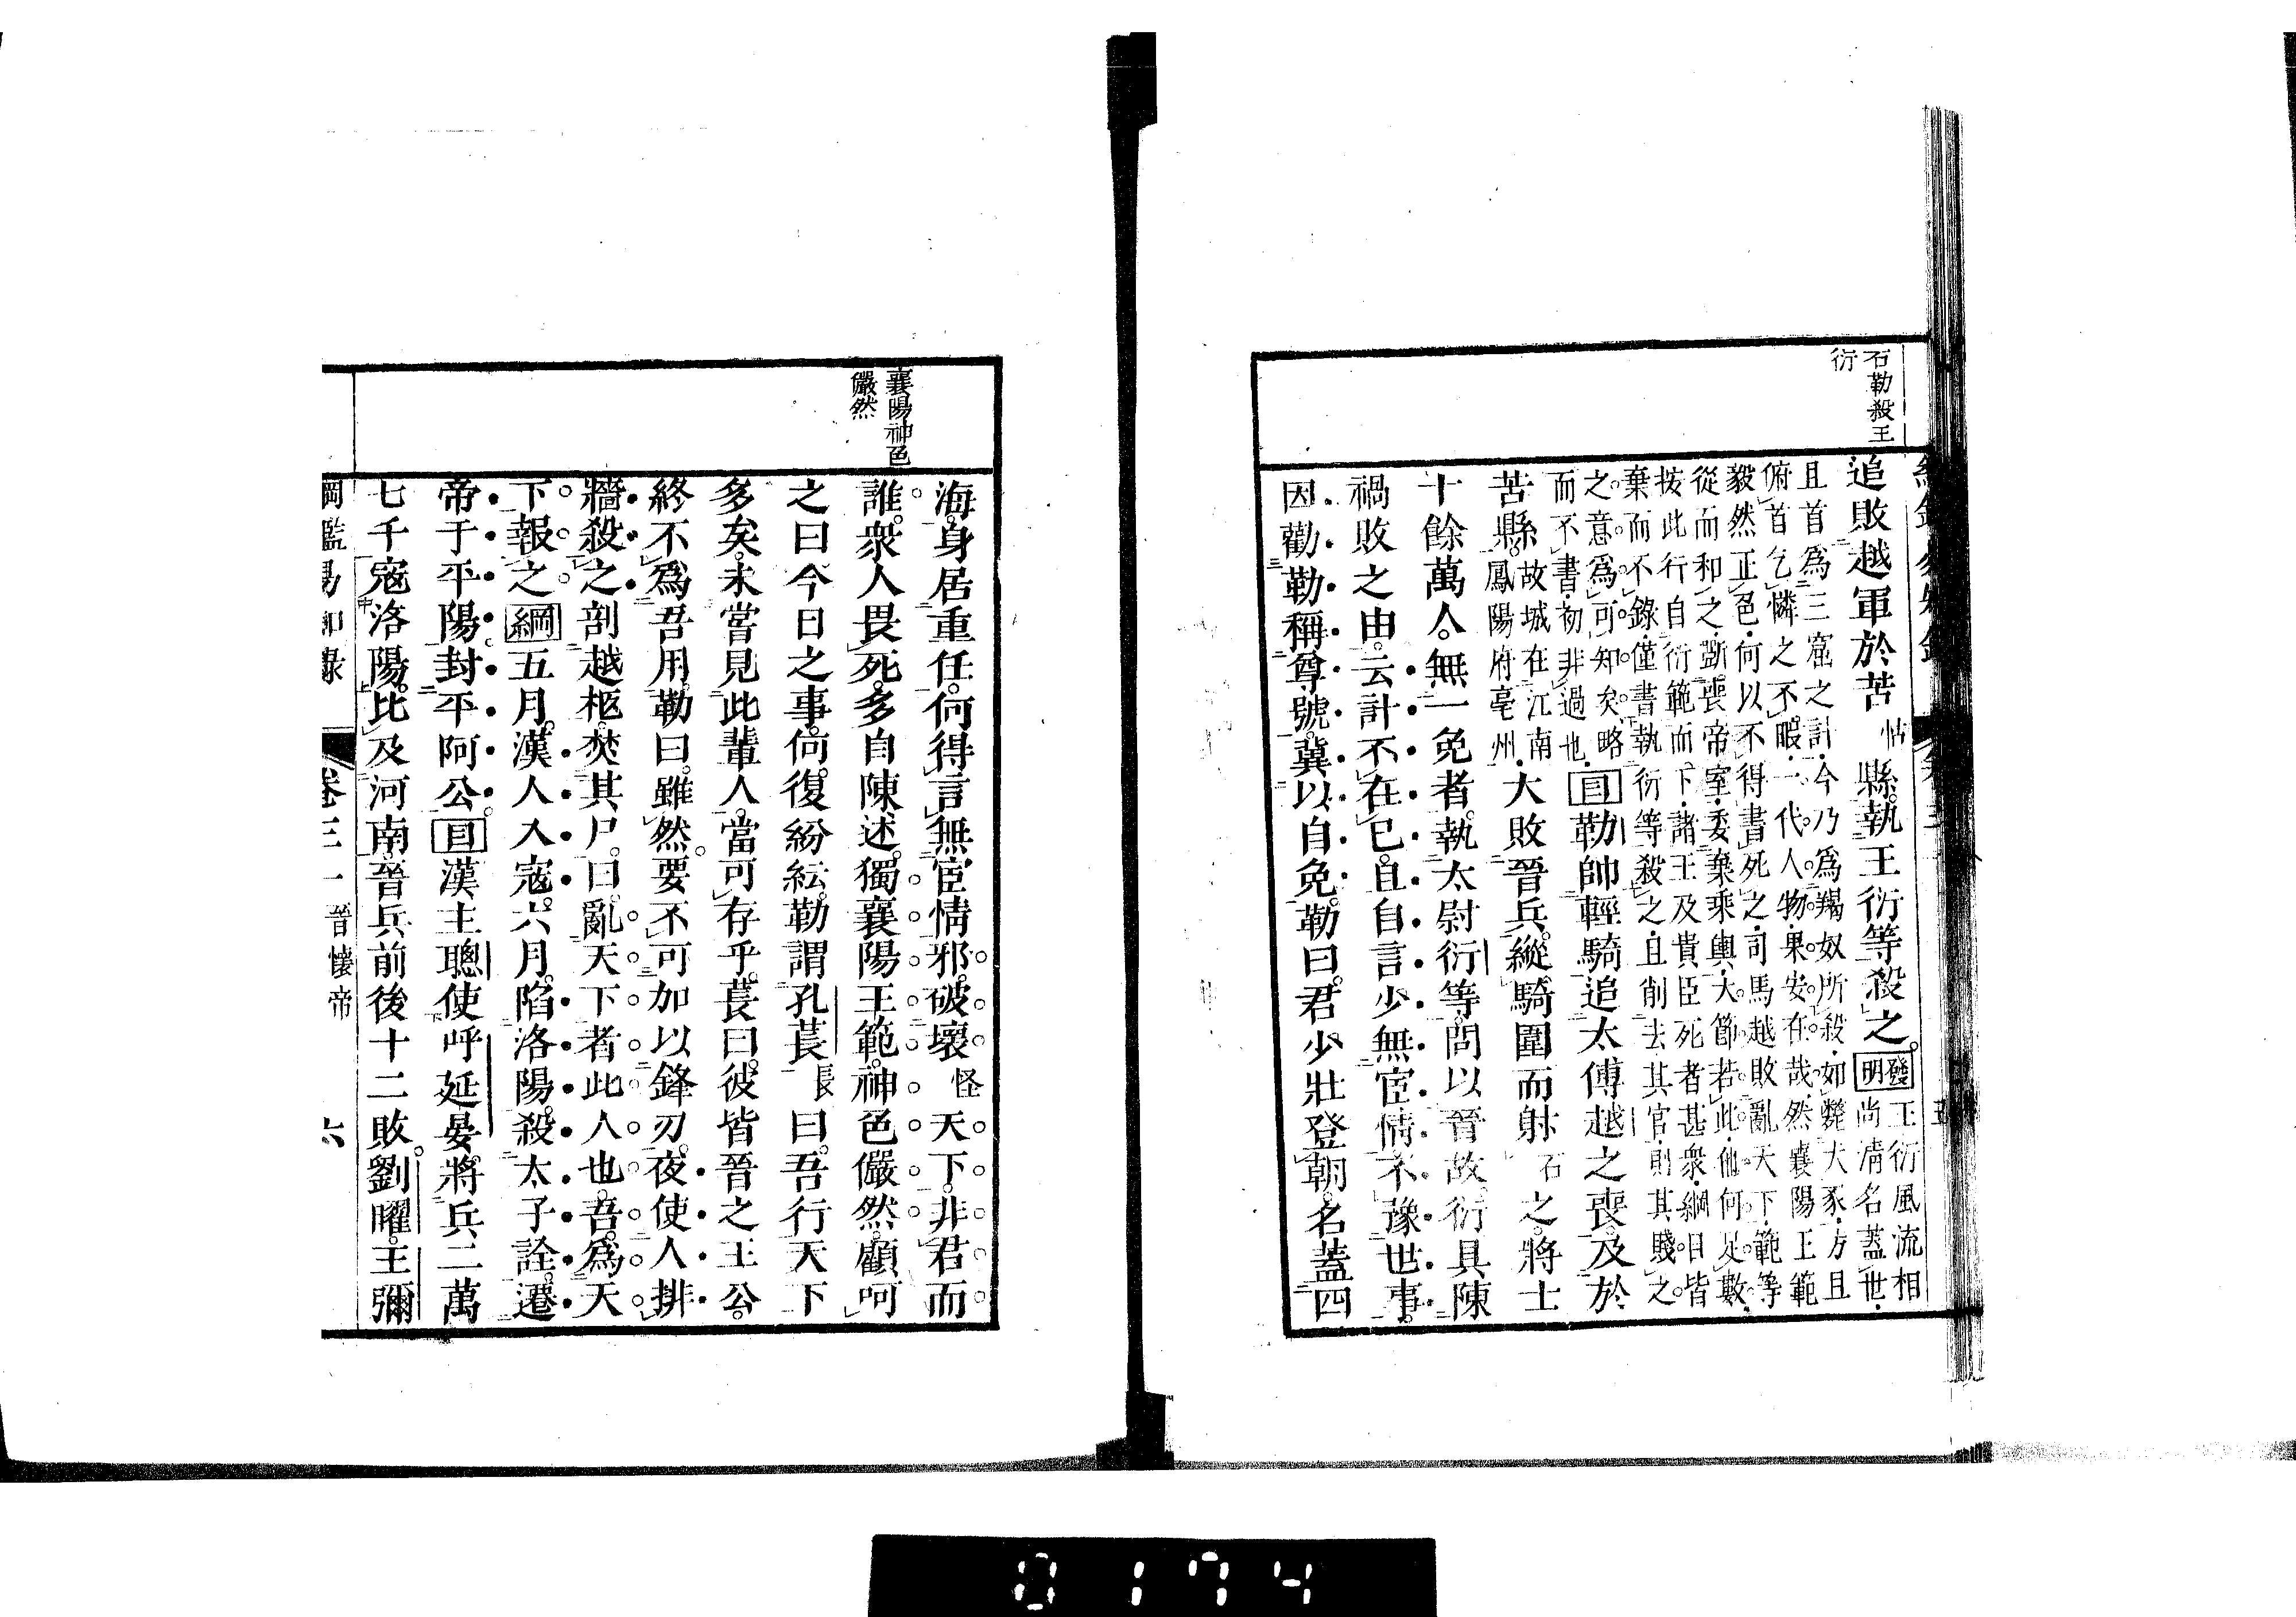 石勒殺王
衍
追敗越軍於苦怙縣執王衍等殺之。發明王衍風流相
尚淸名蓋世
且首爲三窟之計今乃爲羯奴所殺如斃犬豕方且
俯首乞憐之不暇一代人物果安在哉然襄陽王範
毅然正色何以不得書死之司馬越敗亂天下範等
從而和之斵喪帝室委棄乘輿大節若此他何足數
按此行自衍範而下諸王及貴臣死者甚衆綱目皆
棄而不錄僅書執衍等殺之且削去其官則其賤之
之意爲可知矣略
而不書初非過也目勒帥輕騎追太傅越之喪及於
苦縣故城在江南
鳳陽府亳州大敗晉兵縱騎圍而射石之將士
十餘萬人。無一免者執太尉衍等問以晉故衍具陳
禍敗之由云計不在已且自言少無宦情不豫世事
因勸勒稱尊號冀以自免勒曰君少壯登朝名蓋四
襄陽神色
儼然
海身居重任何得言無宦情邪破壞怪天下非君而
誰衆人畏死多自陳述獨襄陽王範神色儼然顧呵
之曰今日之事何復紛紜勒謂孔萇長曰吾行天下
多矣未嘗見此輩人當可存乎萇曰彼皆晉之王公
終不爲吾用勒曰雖然要不可加以鋒刃夜使人排
牆殺之剖越柩焚其尸曰亂天下者此人也吾爲天
下報之綱五月漢人入寇六月陷洛陽殺太子詮遷
帝于平陽封平阿公目漢主聰使呼延晏將兵二萬
七千寇洛陽比及河南晉兵前後十二敗劉曜王彌
綱鑑易知錄 卷三一 晉懷帝 六